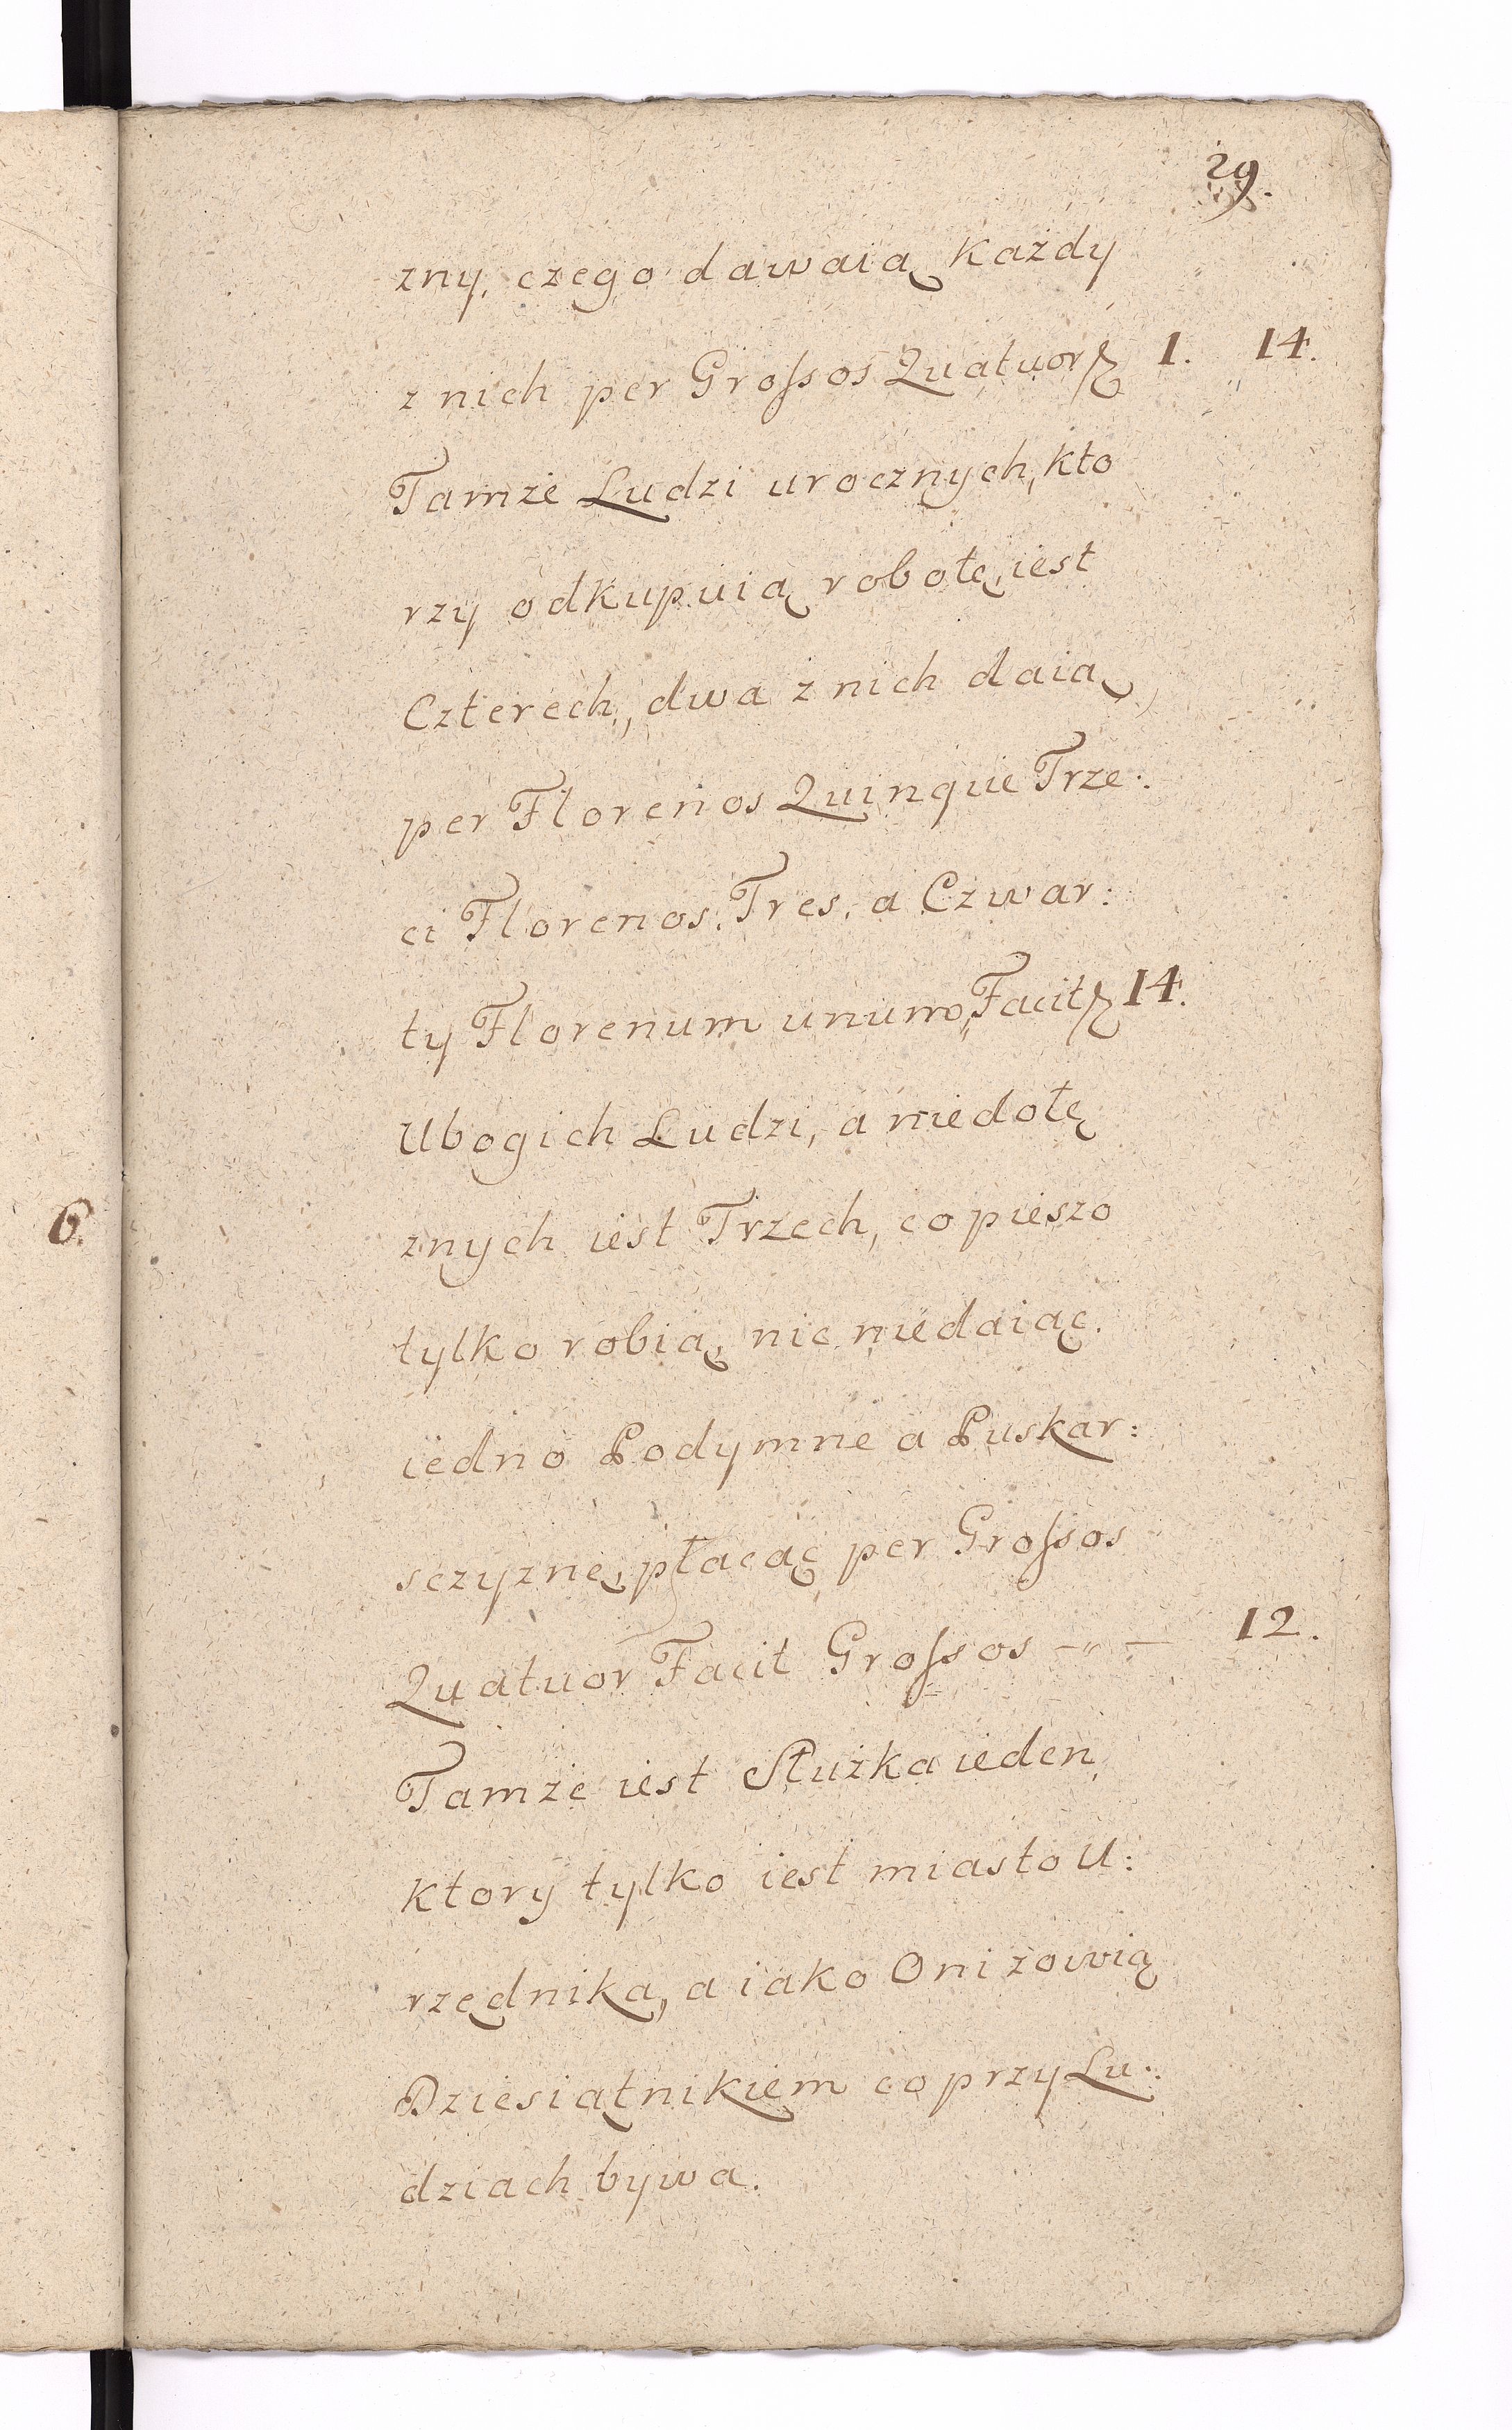 29.
zny, czego dawaią każdy
z nich per Grossos Quatuor 1. 14.
Tamże Ludzi urocznych, kto
rzy odkupuią robotę, iest
Czterech, dwa z nich daią,
per Florenos Quinque Trze:
ci Florenos Tres, a Czwar:
ty Florenum unum, Facit 14.
Ubogich Ludzi, a niedołę
znych iest Trzech, co pieszo
6.
tylko robią, nic niedaiąc.
iedno Podymne a Puskar:
sczyznę, płacąc per Grossos
Quatuor Facit Grossos — " — 12.
Tamże iest Służka ieden,
Ktory tylko iest miasto U:
rzędnika, a iako Oni zowią
Dziesiątnikiem co przy Lu:
dziach bywa.